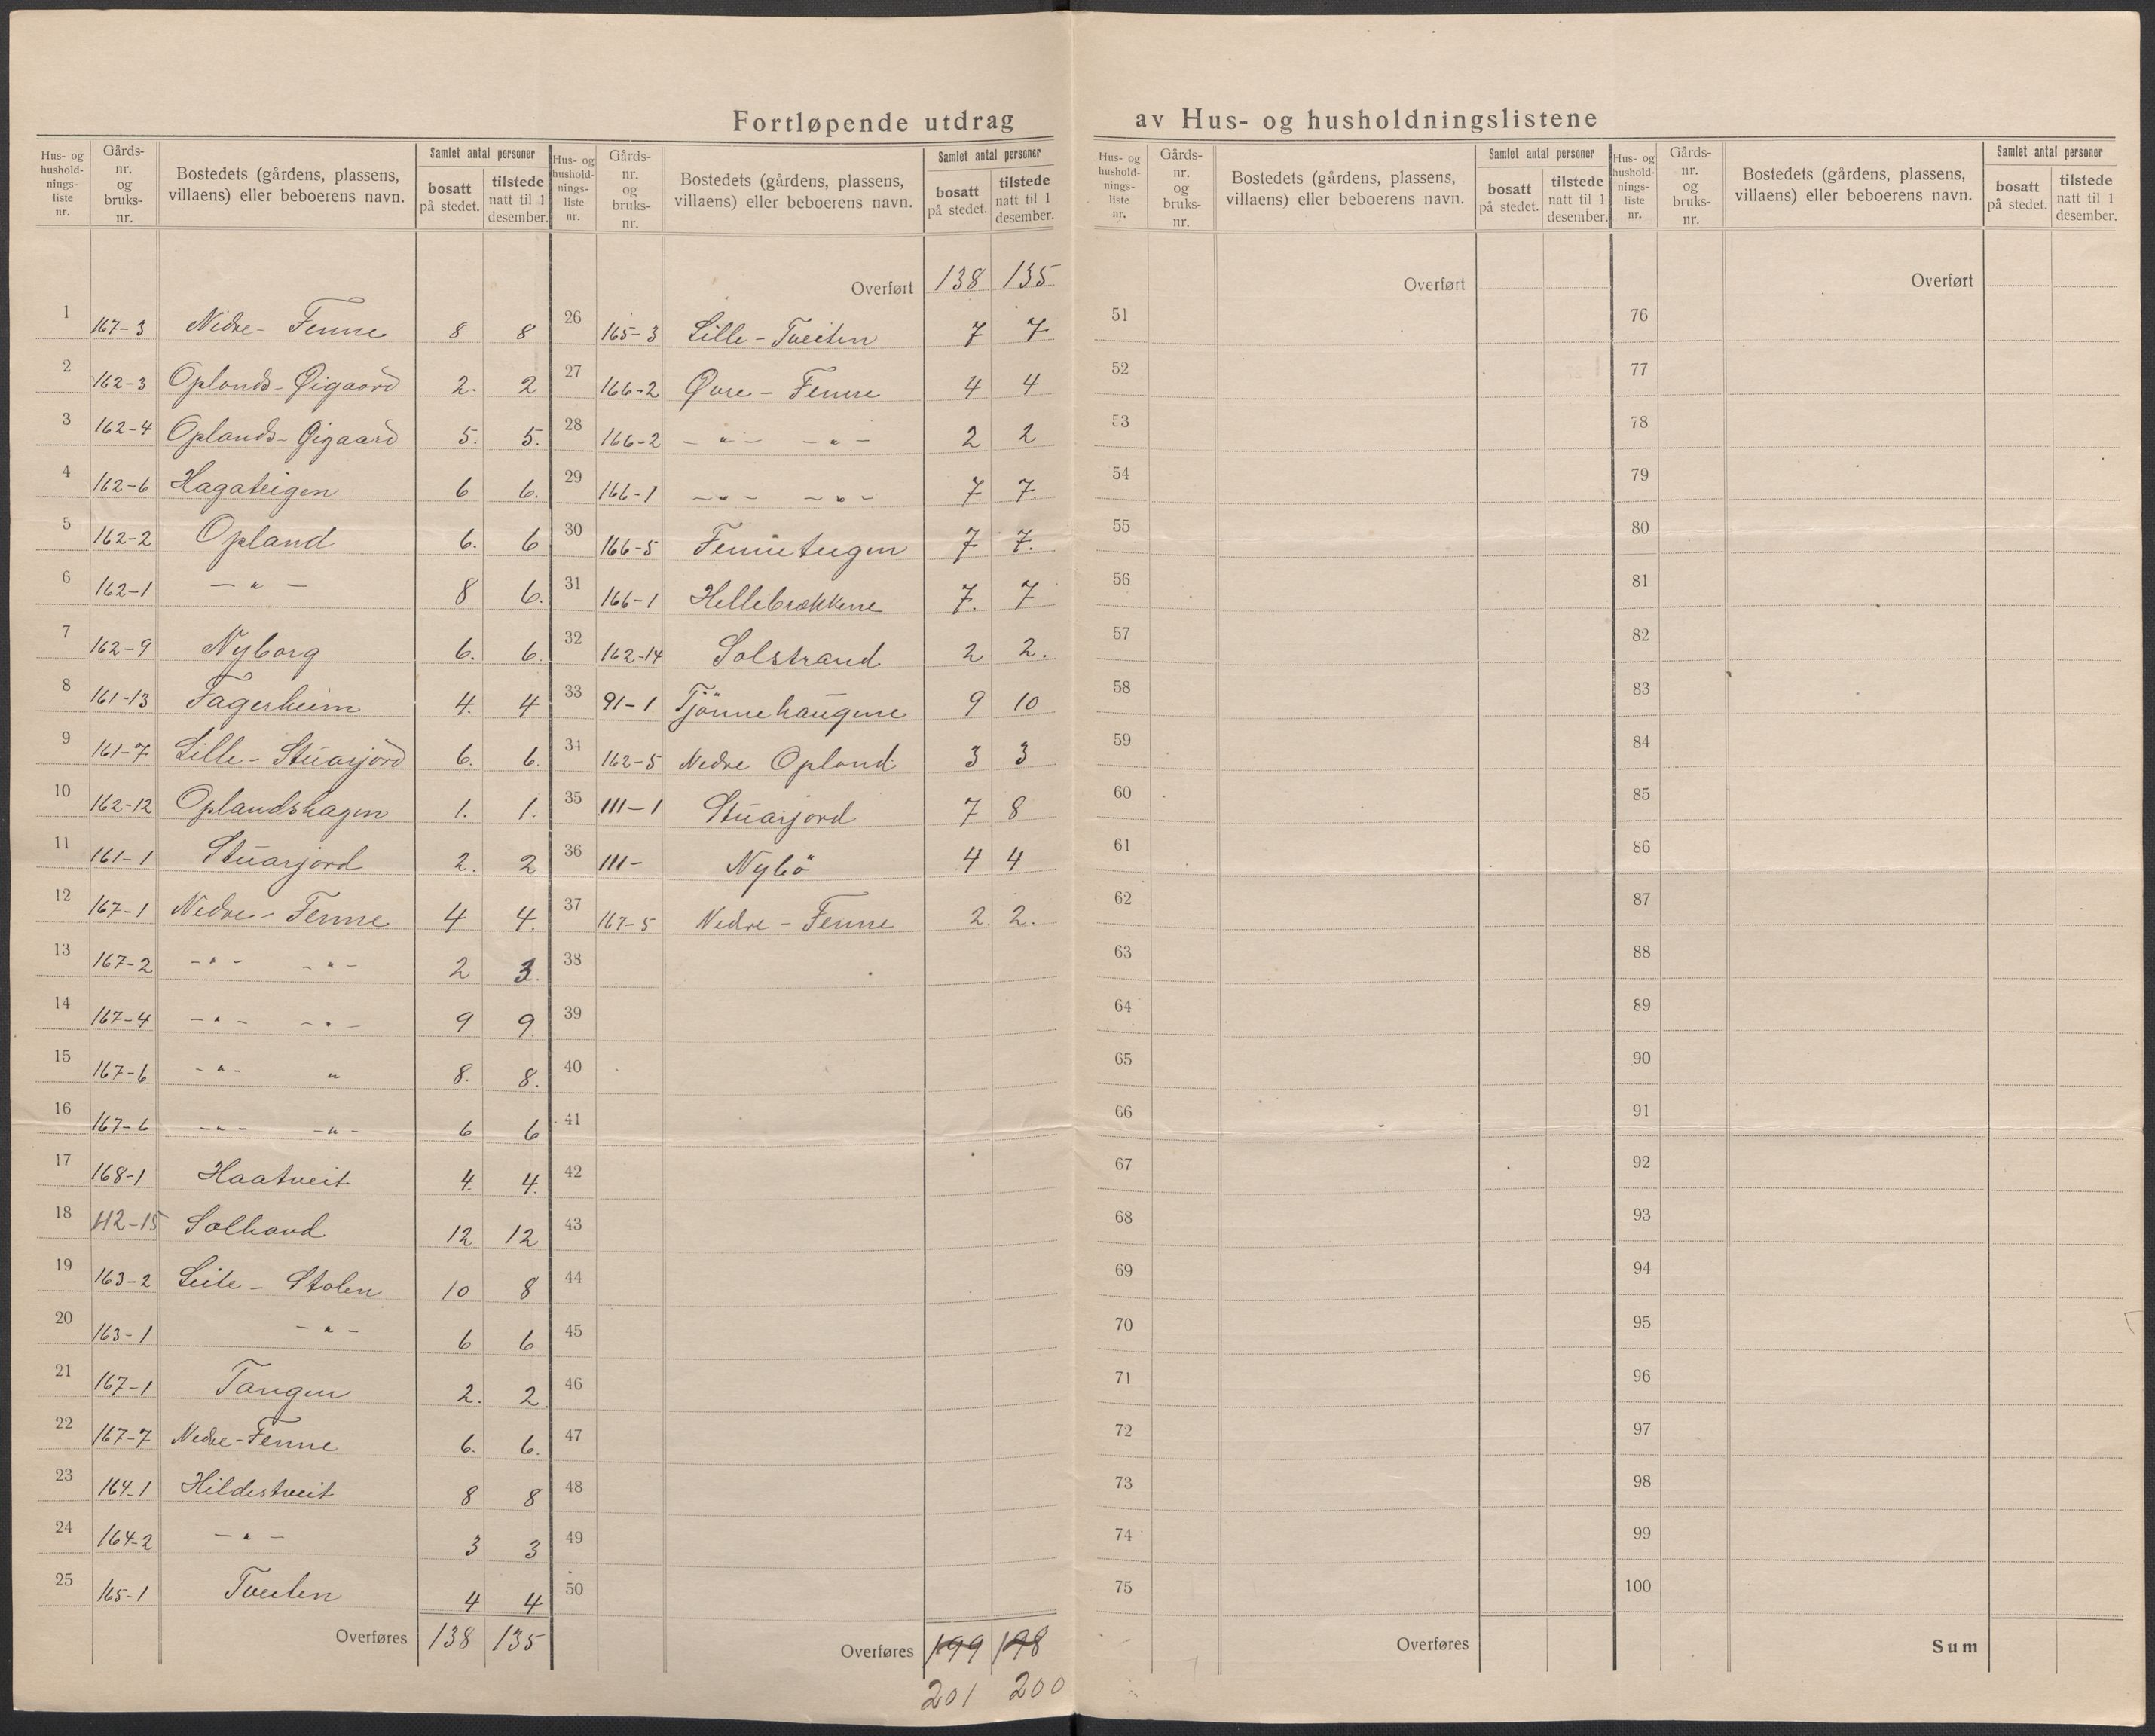 Fortløpende utdrag av Hus- og husholdningslistene
Hus- og hushold-nings-liste nr. | Gårds-nr. og bruks-nr. | Bostedets (gårdens, plassens, villaens) eller beboerens navn. | Samlet antal personer | bosatt på stedet. | tilstede natt til 1 desember.
1 167-3 Nedre- Fenne 8 8
2 162-3 Oplands-Øigaard 2. 2
3 162-4 Oplands-Øigaard 5. 5.
4 162-6 Hagateigen 6 6.
5 162-2 Opland 6. 6
6 162-1 — " — 8 6.
7 162-9 Nyborg 6. 6.
8 161-13 Fagerheim 4. 4
9 161-7 Lille-Stuarjord 6. 6.
10 162-12 Oplandshagen 1. 1.
11 161-1 Stuarjord 2. 2
12 167-1 Nedre- Fenne 4 4.
13 167-2 -"- -"- 2 3.
14 167-4 -"- -"- 9 9.
15 167-6 -"- " 8. 8.
16 167-6 -"- -"- 6 6
17 168-1 Haatveit 4. 4.
18 112-15 Solhaud 12 12
19 163-2 Leite- Stolen 10 8
20 163-1 -"- 6 6
21 167-1 Tangen 2. 2.
22 167-7 Nedre-Fenne 6. 6.
23 164-1 Hildestveit 8 8
24 164-2 -"- 3 3
25 165-1 Tveiten 4 4
Overføres 138 135
Hus- og hushold-nings-liste nr. | Gårds-nr. og bruks-nr. | Bostedets (gårdens, plassens, villaens) eller beboerens navn. | Samlet antal personer | bosatt på stedet. | tilstede natt til 1 desember.
Overført 138 135
26 165-3 Lille-Tveiten 7 7
27 166-2 Øvre- Fenne 4 4
28 166-2 -"- -"- 2 2
29 166-1 -"- -"- 7. 7.
30 166-5 Fenneteigen 7 7.
31 166-1 Hellebrækkene 7. 7
32 162-14 Solstrand 2 2.
33 91-1 Tjönnehaugene 9 10
34 162-5 Nedre Opland 3 3
35 111-1 Stuarjord 7 8
36 111- Nybö 4 4
37 167-5 Nedre-Fenne 2. 2.
38
39
40
41
42
43
44
45
46
47
48
49
50
Overføres 199 198
201 200
Hus- og hushold-nings-liste nr. | Gårds-nr. og bruks-nr. | Bostedets (gårdens, plassens, villaens) eller beboerens navn. | Samlet antal personer | bosatt på stedet. | tilstede natt til 1 desember.
Overført
51
52
53
54
55
56
57
58
59
60
61
62
63
64
65
66
67
68
69
70
71
72
73
74
75
Overføres
Hus- og hushold-nings-liste nr. | Gårds-nr. og bruks-nr. | Bostedets (gårdens, plassens, villaens) eller beboerens navn. | Samlet antal personer | bosatt på stedet. | tilstede natt til 1 desember.
Overført
76
77
78
79
80
81
82
83
84
85
86
87
88
89
90
91
92
93
94
95
96
97
98
99
100
Sum